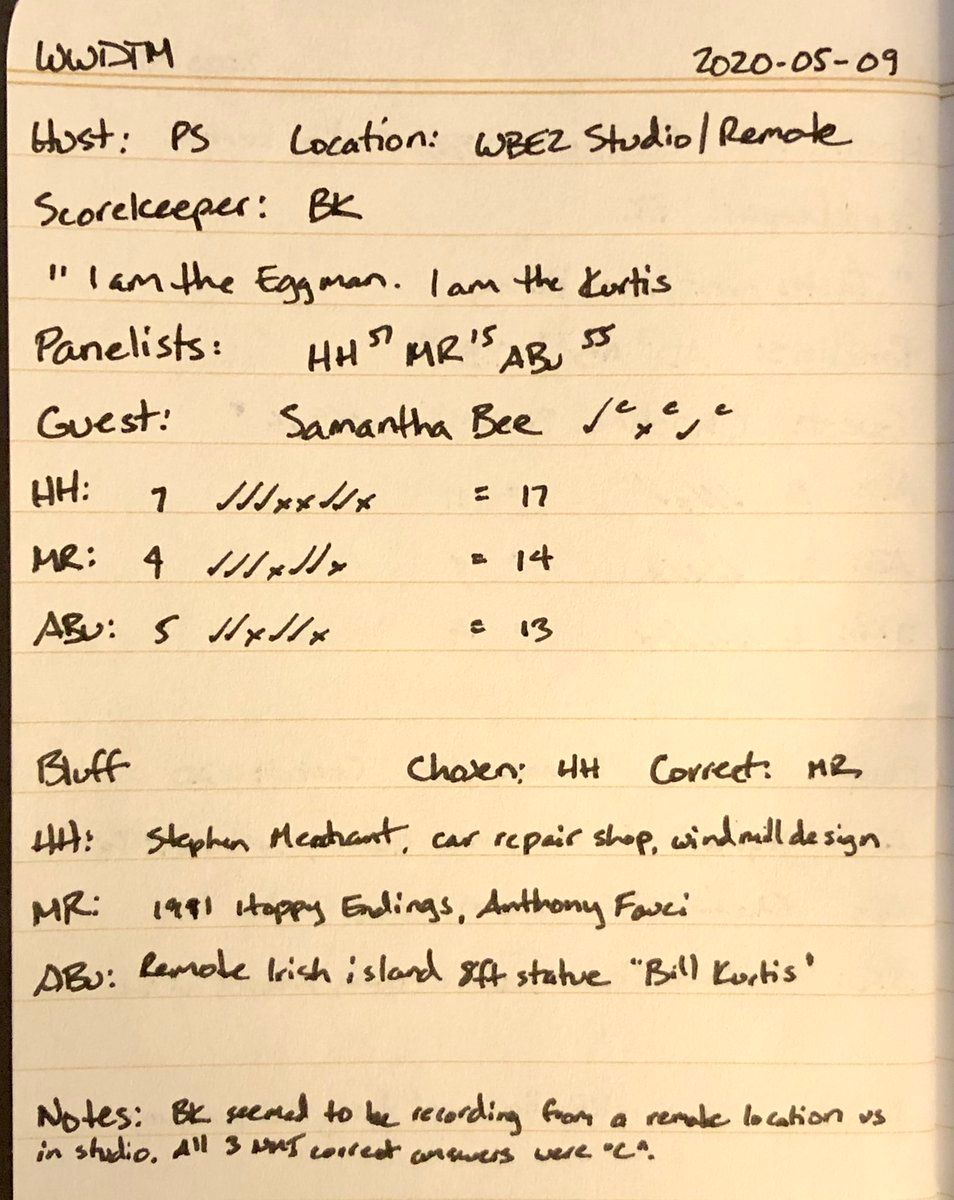 WWDTM 2020-05-09
Host: PS Location: WBEZ Studio/Remote
Scorekeeper: BK
" I am the Eggman. I am the Kurtis
Panelists: HH 57 MR 15 ABu 55
Guest: Samantha Bee ✓c xc ✓c
HH: 7 ✓✓✓xx✓✓x = 17
MR: 4 ✓✓✓x✓✓x = 14
ABu: 5 ✓✓x✓✓x = 13
Bluff Chosen: HH Correct: MR
HH: Stephen Merchant, car repair shop, windmill design
MR: 1991 Happy Endings, Anthony Fauci
ABu: Remote Irish island 8ft statue "Bill Kurtis'
Notes: BK seemed to be recording from a remote location vs
in studio. All 3 NMJ correct answers were "C".